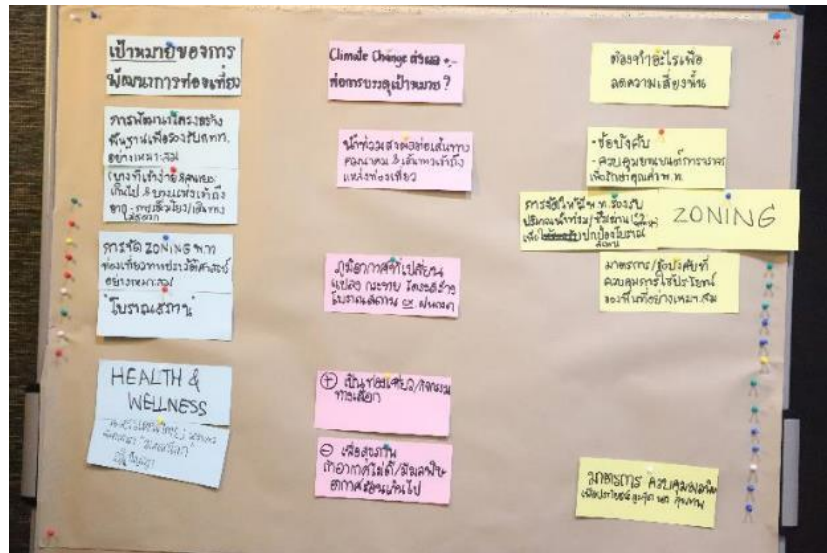 เป้าหมายของการ
พัฒนาการท่องเที่ยว
การพัฒนาโครงสร้าง
พื้นฐานเพื่อรองรับ
อย่างเหมาะสม
เกินไป & บางแห่งเข้าถึง
การจัด ZONING พ.ท
ท่องเที่ยวทางประวัติศาสตร์
อย่างเหมาะสม
"โบราณสถาน"
HEALTH &
WELLNESS
Climate Change ส่งผล +,-
ต่อการบรรลุเป้าหมาย ?
น้ำท่วมส่งผลต่อเส้นทาง
คมนาคม & เส้นทางเข้าถึง
แหล่งท่องเที่ยว
ภูมิอากาศที่เปลี่ยน
แปลง โครงสร้าง
โบราณสถาน ex. ฝนตก
+ เป็นท่องเที่ยว/กิจกรรม
ทางเลือก
- เพื่อสุขภาพ
ถ้าอากาศไม่ดี/มีมลพิษ
อากาศร้อนเกินไป
ต้องทำอะไรเพื่อ
ลดความเสี่ยงนั้น
- ข้อบังคับ
- ควบคุมยานยนต์การจราจร
เพื่อรักษาคุณค่า พ.ท.
การจัดให้มี พ.ท. รองรับ
ปริมาณน้ำท่วม
ปกป้องโบราณ
สถาน
ZONING
มาตรการ/ข้อบังคับที่
ควบคุมการใช้ประโยชน์
ของพื้นที่อย่างเหมาะสม
มาตรการ ควบคุมมลพิษ